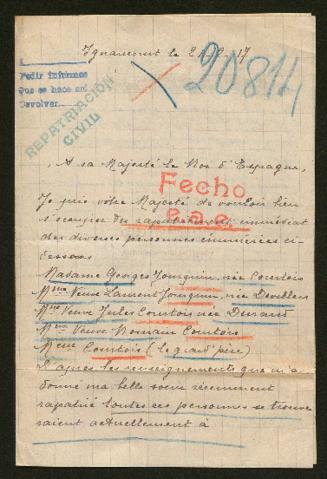 le 2 17
Pedir informes
Que se hace en
Devolver.
20814
REPATRIACIÓN
CIVIL
A sa Majesté le Roi d'Espagne,
Fecho
Je prie votre Majesté de vouloir bien
s'occuper du rapatriement immédiat
des diverses personnes énumérées ci-
dessous
Madame Georges Jouquin, née Courtois
Mme Veuve Laurent Jouquin, née
Mme Veuve Jules Courtois née Durand
Mme Veuve Romain Courtois
Courtois (Le grand père)
D'après les renseignements que m'a
donné ma belle soeur récemment
rapatrié toutes ces personnes se trouve
raient actuellement à